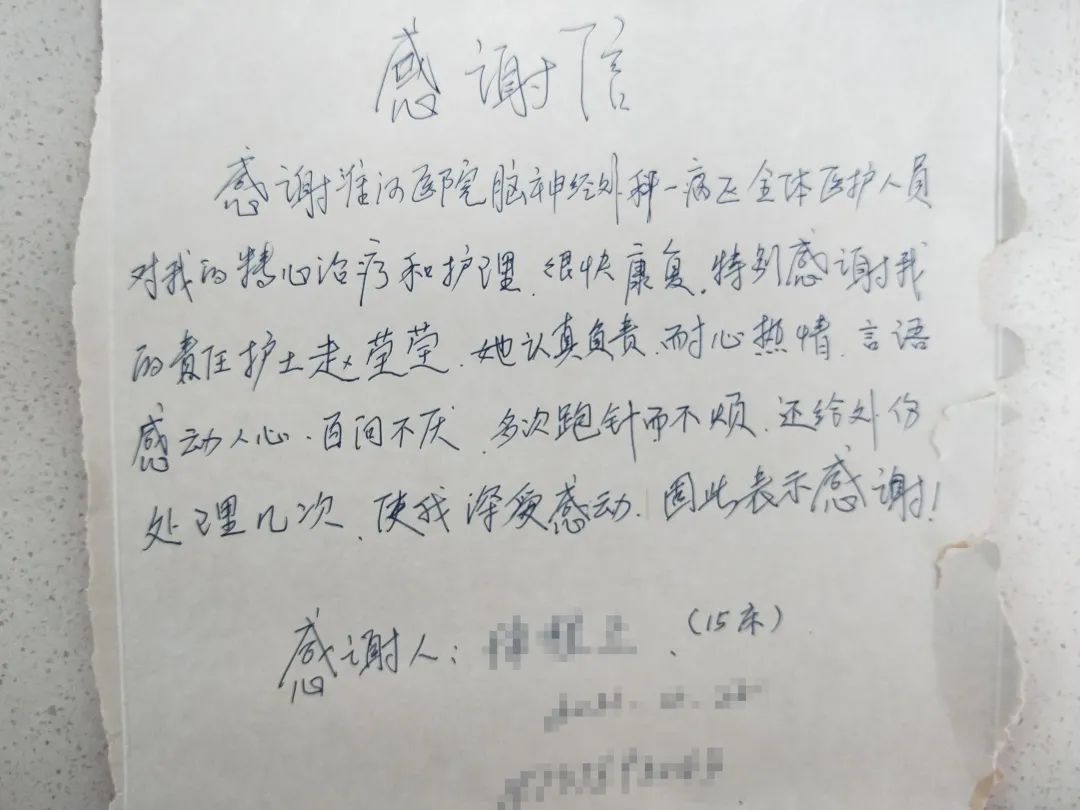 感谢信
感谢淮河医院脑神经外科一病区全体医护人员
对我的精心治疗和护理、很快康复。特别感谢我
的责任护士赵莹莹、她认真负责、耐心热情、言语
感动人心、百问不厌、多次跑针而不烦、还给外伤
处理几次、使我深受感动、因此表示感谢!
感谢人: (15床)